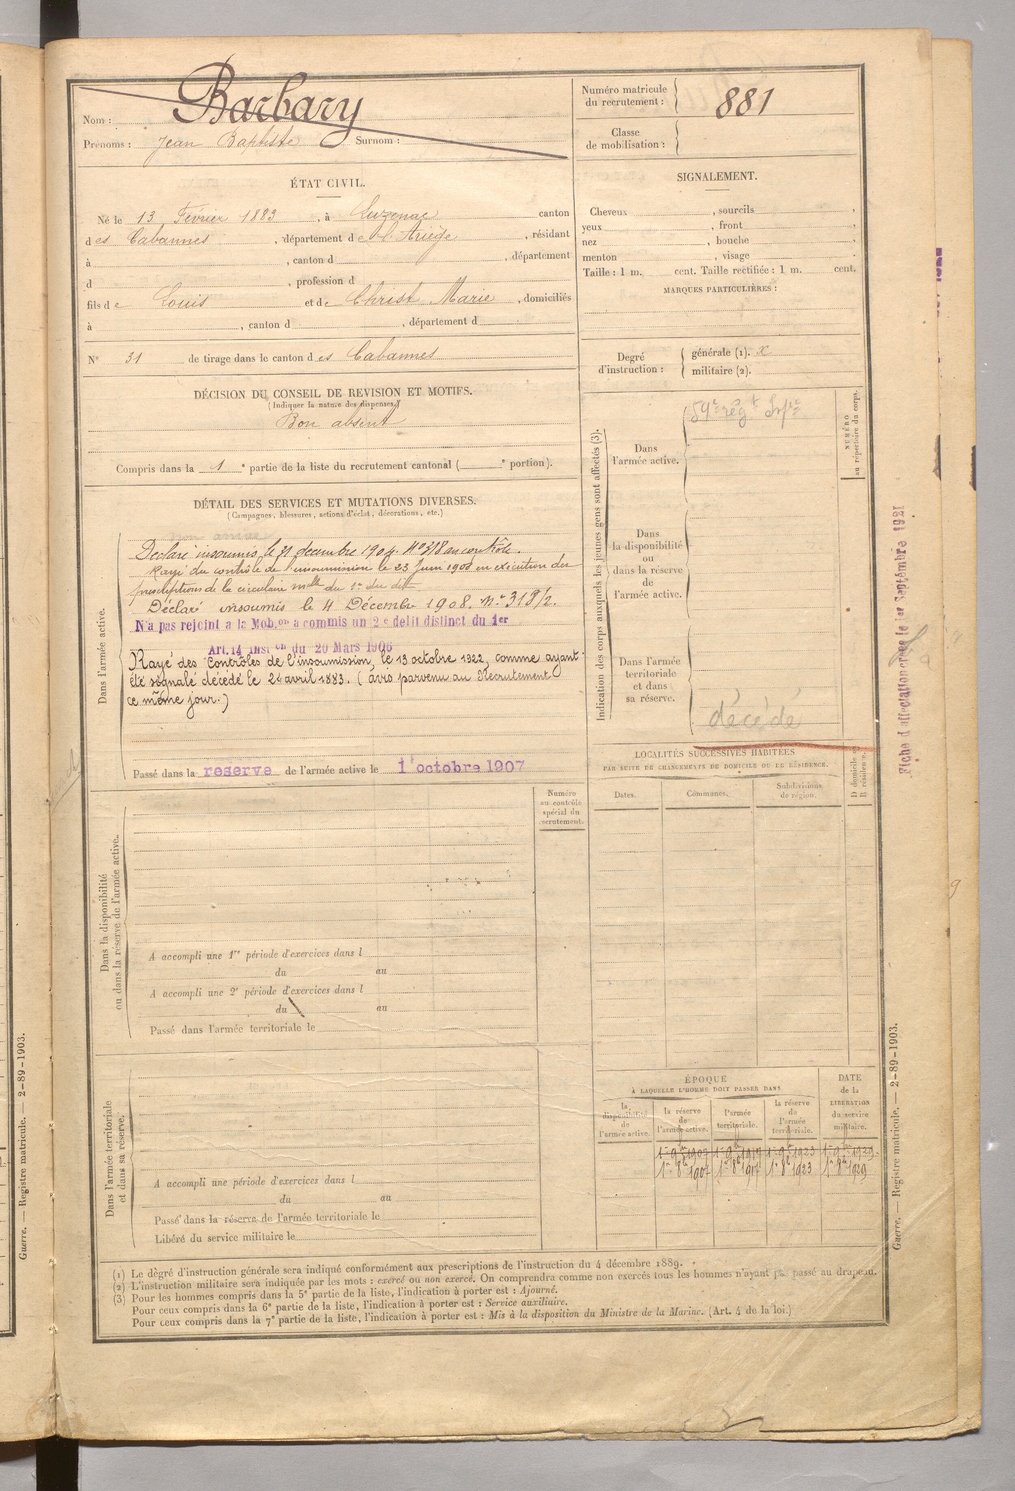 Nom : Barbary
Prénoms : Jean Baptiste Surnom :
Numéro matricule du recrutement : 881
Classe de mobilisation :
ÉTAT CIVIL.
Né le 13 Février 1883, à Luzenac canton
des Cabannes, département de l'Ariège, résidant
à , canton d , département
d , profession d
fils de Louis et de Christ Marie, domiciliés
à , canton d , département d
N° 31 de tirage dans le canton des Cabannes
SIGNALEMENT.
Cheveux , sourcils ,
yeux , front ,
nez , bouche ,
menton , visage .
Taille : 1 m. cent. Taille rectifiée : 1 m. cent.
MARQUES PARTICULIÈRES :
Degré d'instruction : générale (1). x
militaire (2).
DÉCISION DU CONSEIL DE REVISION ET MOTIFS.
(Indiquer la nature des dispenses.)
Bon absent
Compris dans la 1e partie de la liste du recrutement cantonal ( e portion).
DÉTAIL DES SERVICES ET MUTATIONS DIVERSES.
(Campagnes, blessures, actions d'éclat, décorations, etc.)
Dans l'armée active.
non arrivé
Déclaré insoumis le 31 décembre 1904. N° 318 au contrôle.
Rayé du contrôle de l'insoumission le 23 Juin 1908 en exécution des
prescriptions de la circulaire mlle du 1er du dit
Déclaré insoumis le 4 Décembre 1908. N° 318/2.
N'a pas rejoint a la Mob.on a commis un 2e delit distinct du 1er
Art.14 inst on du 20 Mars 1906
Rayé des Contrôles de l'insoumission, le 13 octobre 1922, comme ayant
été signalé décédé le 24 avril 1883. (avis parvenu au Recrutement
ce même jour.)
Passé dans la reserve de l'armée active le 1 octobre 1907
Indication des corps auxquels les jeunes gens sont affectés (3).
NUMÉRO au répertoire du corps.
Dans l'armée active.
59e régt Infie
Dans la disponibilité ou dans la réserve de l'armée active.
Dans l'armée territoriale et dans sa réserve.
décédé
Fiche d'affectation créée le 1er Septembre 1921
LOCALITÉS SUCCESSIVES HABITÉES
PAR SUITE DE CHANGEMENTS DE DOMICILE OU DE RÉSIDENCE.
D domicile R résidence.
Dates. Communes. Subdivisions de région.
Dans la disponibilité ou dans la réserve de l'armée active.
Numéro au contrôle spécial du recrutement.
A accompli une 1re période d'exercices dans l
du au
A accompli une 2e période d'exercices dans l
du au
Passé dans l'armée territoriale le
Dans l'armée territoriale et dans sa réserve.
A accompli une période d'exercices dans l
du au
Passé dans la réserve de l'armée territoriale le
Libéré du service militaire le
ÉPOQUE
À LAQUELLE L'HOMME DOIT PASSER DANS
DATE de la LIBÉRATION du service militaire.
la disponibilité de l'armée active.
la réserve de l'armée active.
l'armée territoriale.
la réserve de l'armée territoriale.
1er 9bre 1907 1er 9bre 1917 1er 9bre 1923 1er 9bre 1929
1er 8bre 1907 1er 8bre 1917 1er 8bre 1923 1er 8bre 1929
(1) Le degré d'instruction générale sera indiqué conformément aux prescriptions de l'instruction du 4 décembre 1889.
(2) L'instruction militaire sera indiquée par les mots : exercé ou non exercé. On comprendra comme non exercés tous les hommes n'ayant pas passé au drapeau.
(3) Pour les hommes compris dans la 5e partie de la liste, l'indication à porter est : Ajourné.
Pour ceux compris dans la 6e partie de la liste, l'indication à porter est : Service auxiliaire.
Pour ceux compris dans la 7e partie de la liste, l'indication à porter est : Mis à la disposition du Ministre de la Marine. (Art. 4 de la loi.)
Guerre. — Registre matricule. — 2-89-1903.
Guerre. — Registre matricule. — 2-89-1903.